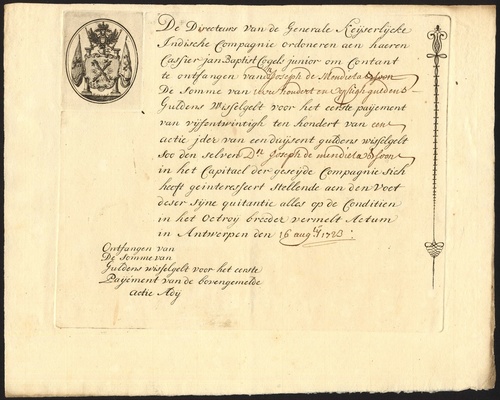 De Directeurs van de Generale Keyserlijcke
Indische Compagnie ordoneren aen haeren
Cassier Jan Baptist Cogels junior om Contant
te ontfangen van Joseph de Mendieta & soon
De Somme van twee hondert en vyftigh guldens
Guldens Wisselgelt voor het eerste payement
van vijfentwintigh ten hondert van een
actie jder van eenduysent guldens wisselgelt
Soo den selven Dhr Joseph de mendieta & soon
in het Capitael der geseyde Compagnie sich
heeft geinteresseert Stellende aen den Voet
deser sijne quitantie alles op de Conditien
in het Octroy breeder vermelt Actum
in Antwerpen den 16 augt 1723:
Ontfangen van
De Somme van
Guldens wisselgelt voor het eerste
Payement van de bovengemelde
actie Adij